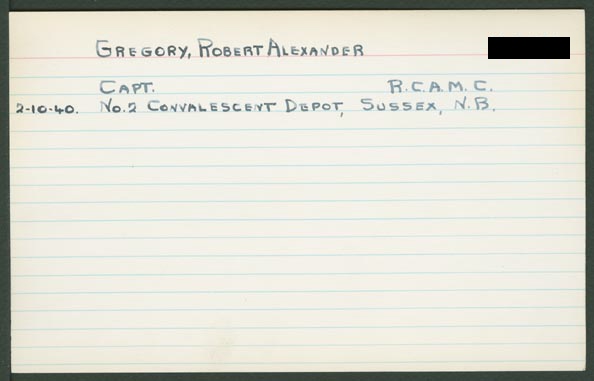 GREGORY, ROBERT ALEXANDER
CAPT. R.C.A.M.C.
2-10-40. No.2 CONVALESCENT DEPOT, SUSSEX, N.B.